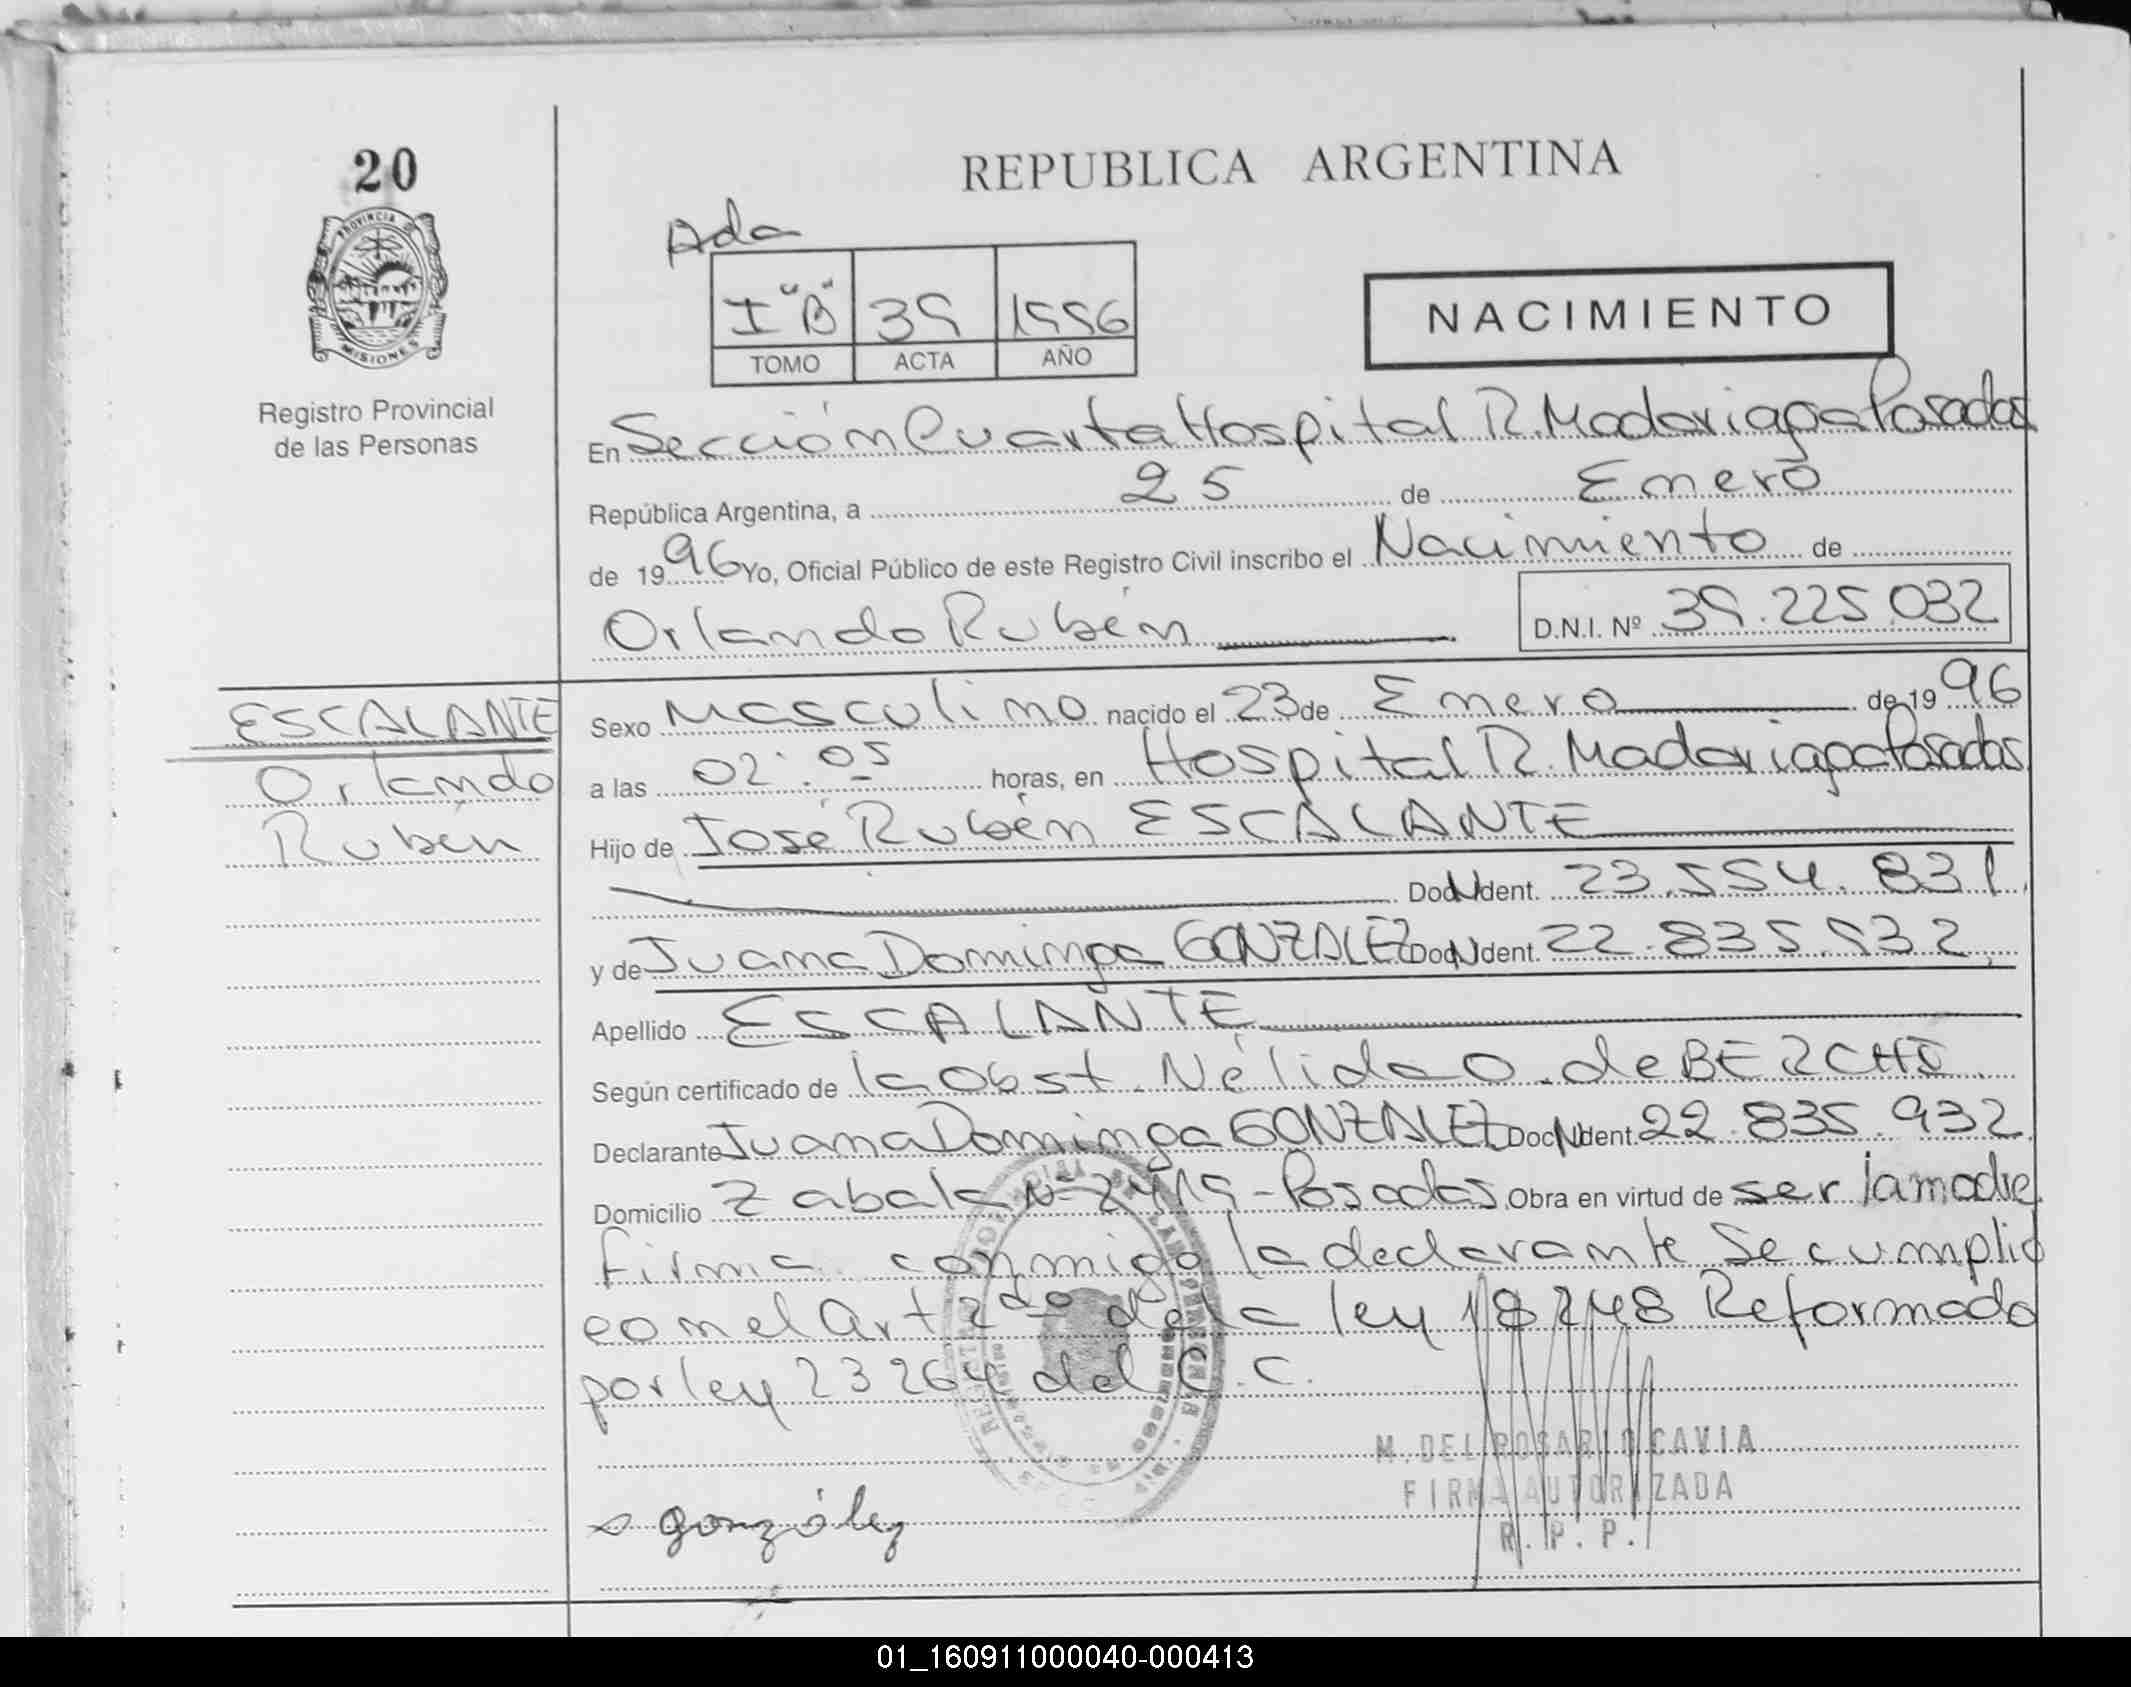 20
PROVINCIA D
MISIONES
Registro Provincial
de las Personas
REPUBLICA ARGENTINA
Ada
I "B" 39 1996
TOMO ACTA AÑO
NACIMIENTO
En Sección Cuarta Hospital R. Madariaga Posadas
República Argentina, a 25 de Enero
de 1996 Yo, Oficial Público de este Registro Civil inscribo el Nacimiento de
Orlando Rubén D.N.I. Nº 39.225.032
ESCALANTE
Orlando
Rubén
Sexo Masculino nacido el 23 de Enero de 1996
a las 02:05 horas, en Hospital R. Madariaga Posadas
Hijo de José Rubén ESCALANTE
Doc N Ident. 23.554.831
y de Juana Dominga GONZALEZ Doc N Ident. 22.835.932
Apellido ESCALANTE
Según certificado de la Obst. Nélida O. de BERCHI
Declarante Juana Dominga GONZALEZ Doc N Ident. 22.835.932
Domicilio Zabala Nº 2419 - Posadas Obra en virtud de ser la madre
firma conmigo la declarante Se cumplió
con el Art 2do de la ley 18248 Reformado
por ley 23264 del C.C.
M. DEL ROSARIO CAVIA
FIRMA AUTORIZADA
R. P. P.
González
01_160911000040-000413